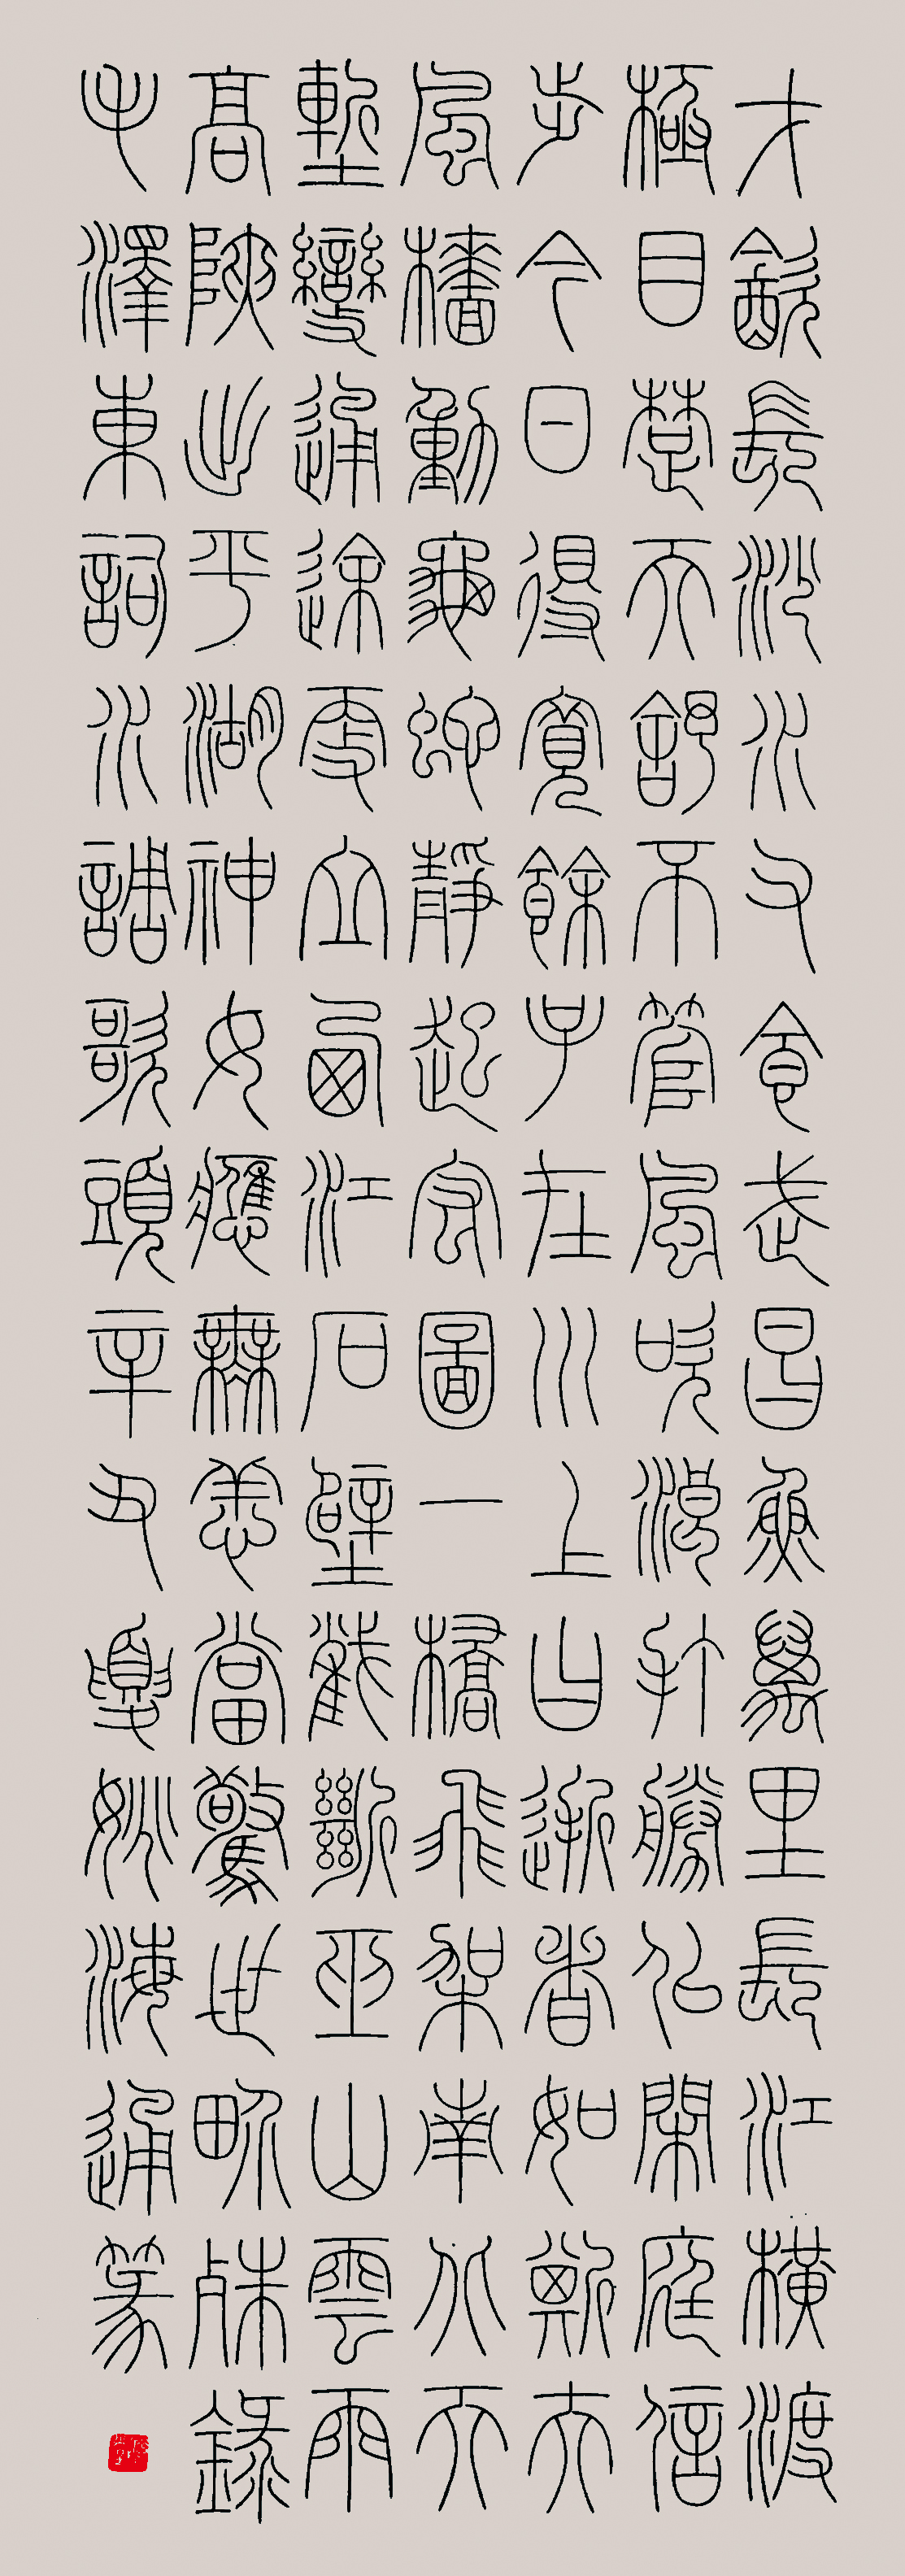 才飲長沙水又食武昌魚萬里長江橫渡
極目楚天舒不管風吹浪打勝似閑庭信
步今日得寬餘子在川上曰逝者如斯夫
風檣動龜蛇靜起宏圖一橋飛架南北天
塹變通途更立西江石壁截斷巫山雲雨
高峽出平湖神女應無恙當驚世界殊錄
毛澤東詞水調歌頭辛丑夏妙海通篆